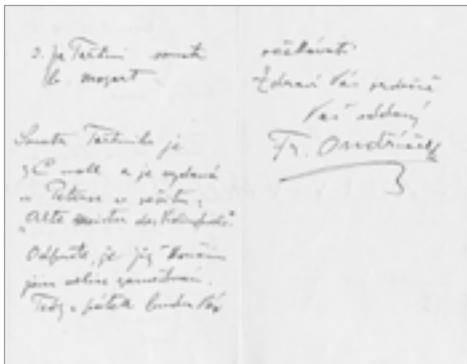 2. Tartini sonata
b. mozart
Sonata Tartiniho je
z C moll a je vydaná
u Peterse v sešitu
"Alte Meister des Violinspiels".
Odpusťte, že již končím
jsem velice zaměstnán.
Tedy v pátek budu Vás
očekávati.
Zdraví Vás srdečně
Váš oddaný
Fr. Ondříček